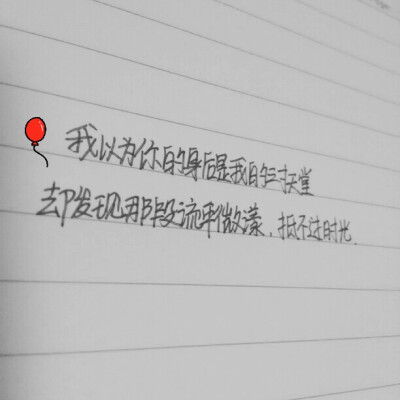 我以为你的身后是我的三寸天堂
却发现那段流年微漾，抵不过时光.